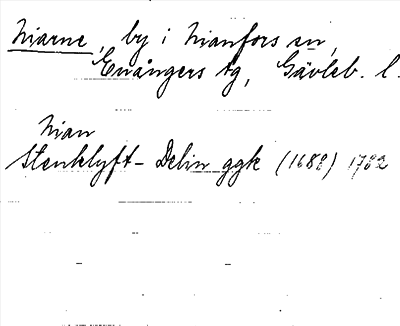 Niarne, by i Nianfors sn,
Enångers tg, Gävleb. l.
Nian
Stenklyft - Delin ggk (1688) 1782